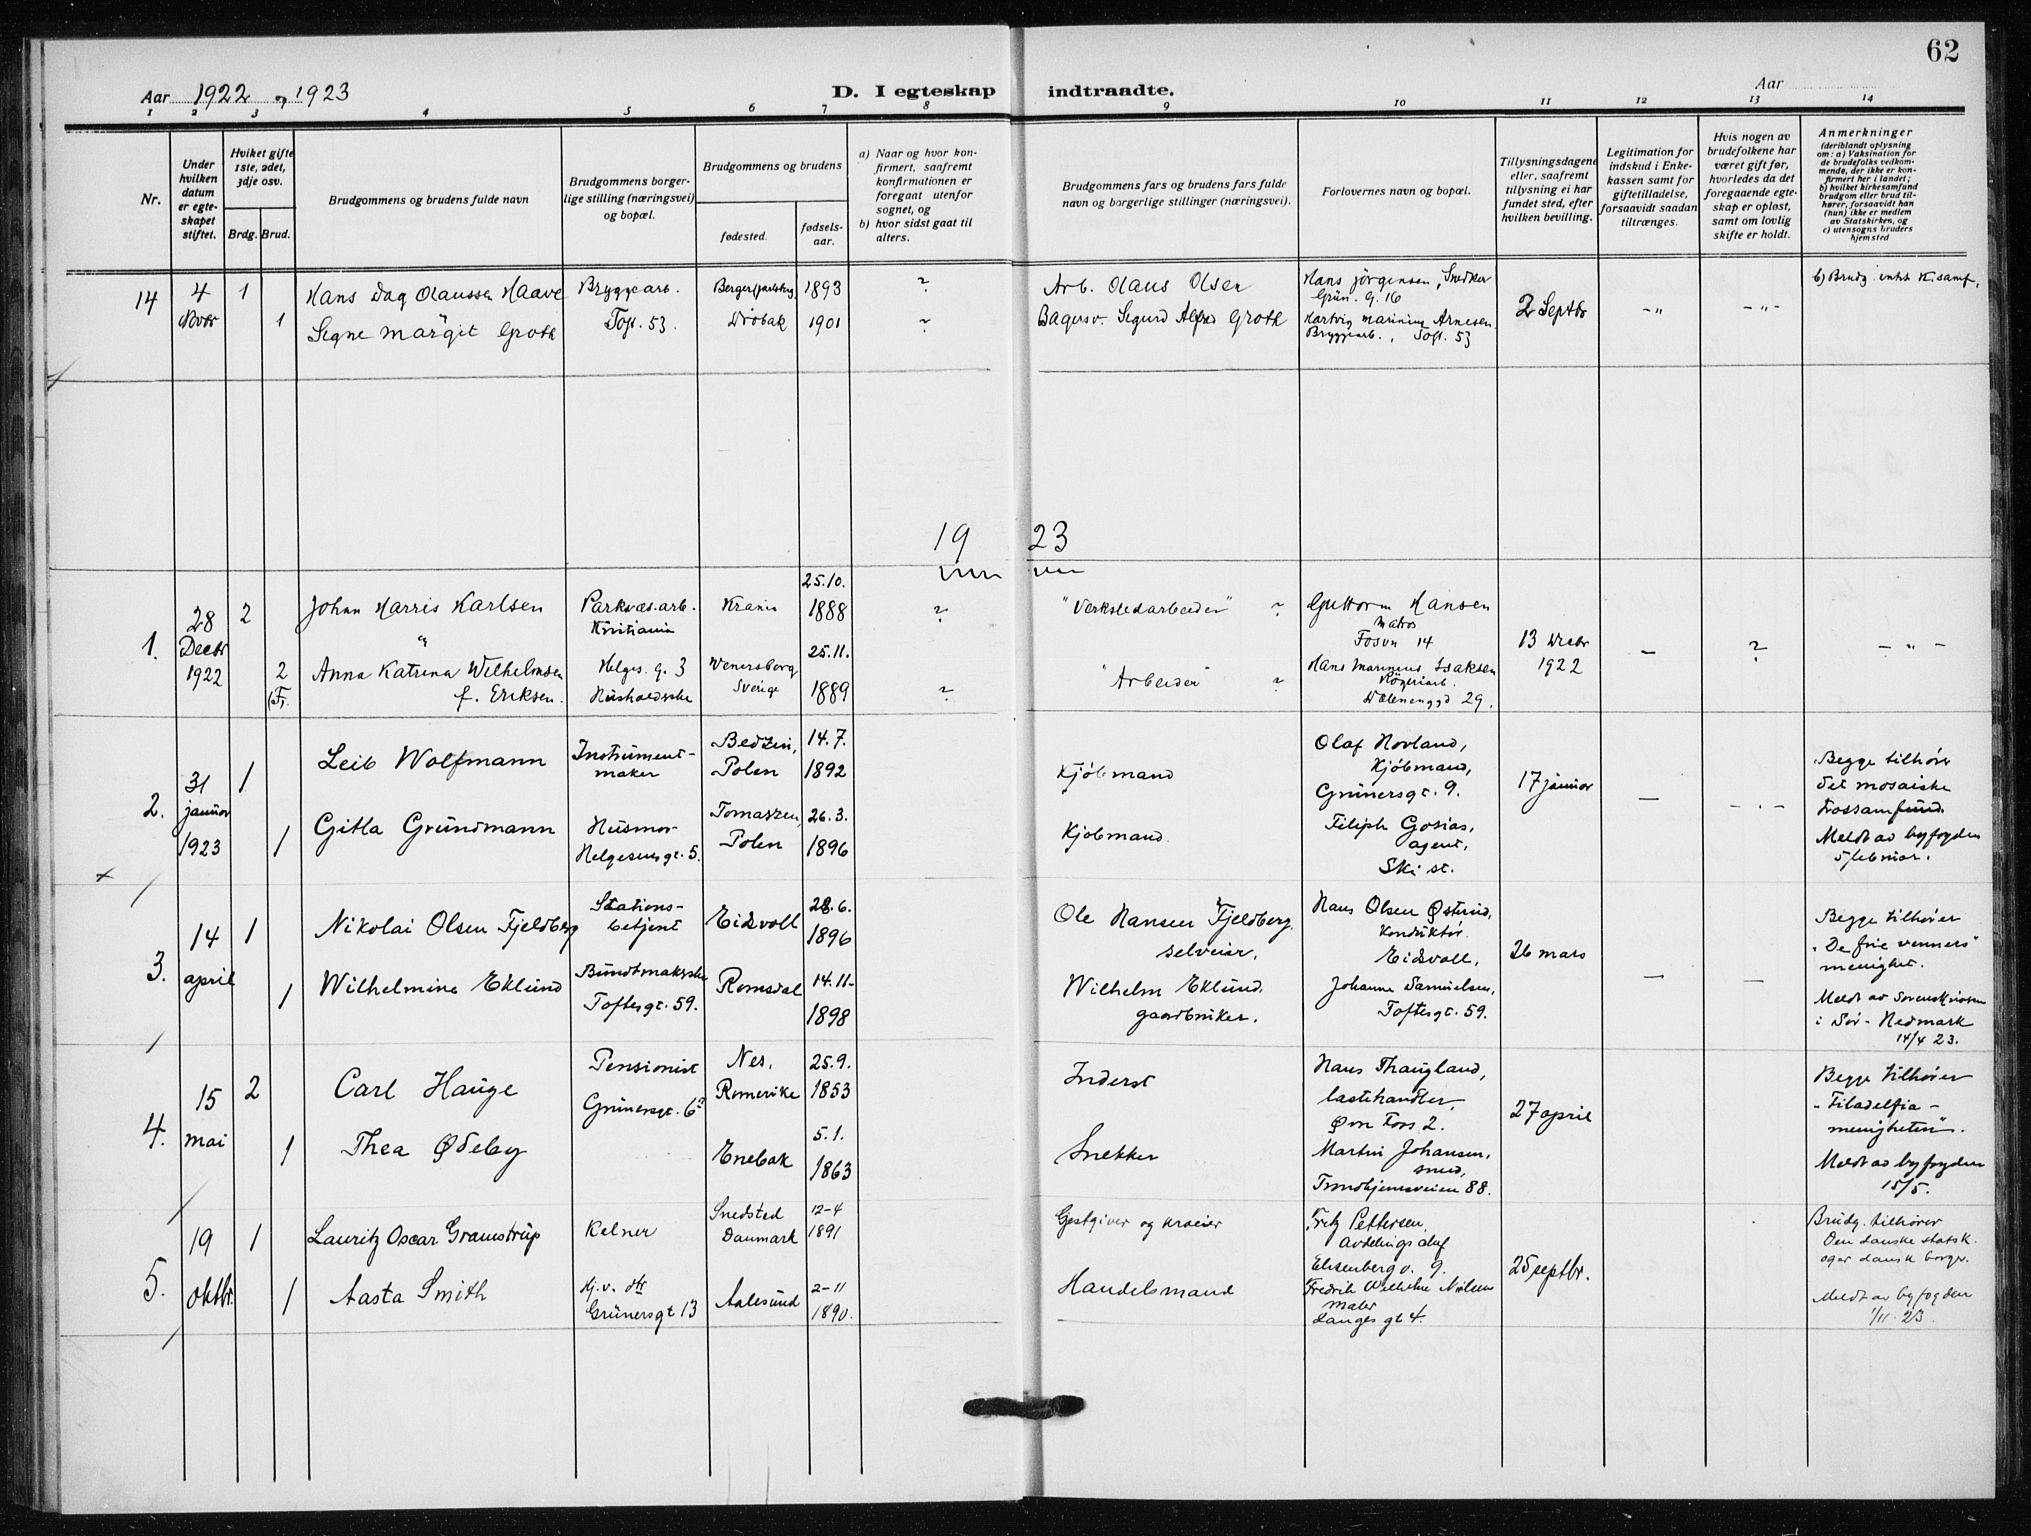 62
Aar 1922 og 1923
D. I egteskap indtraadte.
Aar
1 2 3 4 5 6 7 8 9 10 11 12 13 14
Nr.
Under
hvilken
datum
er egte-
skapet
stiftet.
Hviket gifte
1ste, 2det,
3dje osv.
Brdg. Brud.
Brudgommens og brudens fulde navn
Brudgommens borger-
lige stilling (næringsvei)
og bopæl.
Brudgommens og brudens
fødested.
fødsels-
aar.
a) Naar og hvor kon-
firmert, saafremt
konfirmationen er
foregaat utenfor
sognet, og
b) hvor sidst gaat til
alters.
Brudgommens fars og brudens fars fulde
navn og borgerlige stillinger (næringsvei).
Forlovernes navn og bopæl.
Tillysningsdagene
eller, saafremt
tillysning ei har
fundet sted, efter
hvilken bevilling.
Legitimation for
indskud i Enke-
kassen samt for
giftetilladelse,
forsaavidt saadan
tiltrænges.
Hvis nogen av
brudefolkene har
været gift før,
hvorledes da det
foregaaende egte-
skap er opløst,
samt om lovlig
skifte er holdt.
Anmerkninger
(deriblandt oplysning
om: a) Vaksination for
de brudefolks vedkom-
mende, der ikke er kon-
firmert her i landet;
b) hvilket kirkesamfund
brudgom eller brud til-
hører, forsaavidt han
(hun) ikke er medlem
av Statskirken, og
c) utensogns bruders
hjemsted
14
4
Novbr
1
1
Hans Dag Olaussen Haave
Signe Margit Groth
Bryggearb.
Toft. 53.
Berger (Jarlsberg)
Drøbak
1893
1901
?
?
Arb. Olaus Olsen
Bagersv. Sigurd Alfred Groth
Hans Jørgensen, Snedker
Grün. g. 16
Hartvig Marinius Arnesen
Bryggearb., Toft. 53
2 Septbr
- " -
- " -
b) Brudg. intet K. samf.
19 23
1.
28
Decbr
1922
2
2
(F).
Johan Harris Karlsen
Anna Katrina Wilhelmsen
f. Eriksen.
Parkvæs.arb.
Kristiania
Helges. g. 3
Husholderske
Krania
Wenersborg
Sverige
25.10.
1888
25.11.
1889
?
?
"Verkstedarbeider" ?
"Arbeider" ?
Guttorm Hansen
Matros
Fosvn 14
Hans Marinius Isaksen
Wælenenggd 29.
13 Decbr
1922
-
?
- " -
2.
31
januar
1923
1
1
Leib Wolfmann
Gitla Grundmann
Instrument-
maker
Husmor
Helgesensgt. 5.
Bedzin,
Polen
Tomaszen,
Polen
14.7.
1892
26.3.
1896
Kjøbmand
Kjøbmand.
Olaf Hovland,
Kjøbmand,
Grünersgt. 9.
Filiph Gosias,
agent,
Ski st.
17 januar
-
- " -
Begge tilhører
det mosaiske
trossamfund.
Meldt av byfogden
5 februar.
3.
14
april
1
1
Nikolai Olsen Fjeldberg
Wilhelmine Eklund
Stations-
betjent
Bundtmakerske
Toftesgt. 59.
Eidsvoll
Romsdal
28.6.
1896
14.11.
1898
Ole Hansen Fjeldberg,
selveier.
Wilhelm Eklund,
gaardbruker.
Hans Olsen Østerud,
Konduktør.
Eidsvoll.
Johanne Samuelsen,
Toftesgt. 59.
26 mars
-
-
Begge tilhører
"De frie venners"
menighet.
Meldt av Sorenskriveren
i Sør-Hedmark
14/4 23.
4.
15
mai
2
1
Carl Hauge
Thea Ødeby
Pensionist
Grünersgt. 6
Nes,
Romerike
Enebak
25.9.
1853
5.1.
1863
Inderst
Snekker
Hans Thaugland,
lastehandler,
Øvre Foss 2.
Martin Johansen,
smed,
Trondhjemsveien 88.
27 april
Begge tilhører
"Filadelfia-
menigheten".
Meldt av byfogden
15/5.
5.
19
oktbr.
1
1
Lauritz Oscar Gramstrup
Aasta Smith
Kelner
Grünersgt 13
Snedsted
Danmark
Aalesund
12-4
1891
2-11
1890.
Gestgiver og kroeier
Handelsmand
Fritz Pettersen,
avdelingschef
Eilsenberg v. 9.
Fredrik Wilhelm Nielsen
maler
Langes gt 4.
25 septbr.
Brudg. tilhører
Den danske statsk.
og er dansk borger.
Meldt av byfogden
1/11. 23.